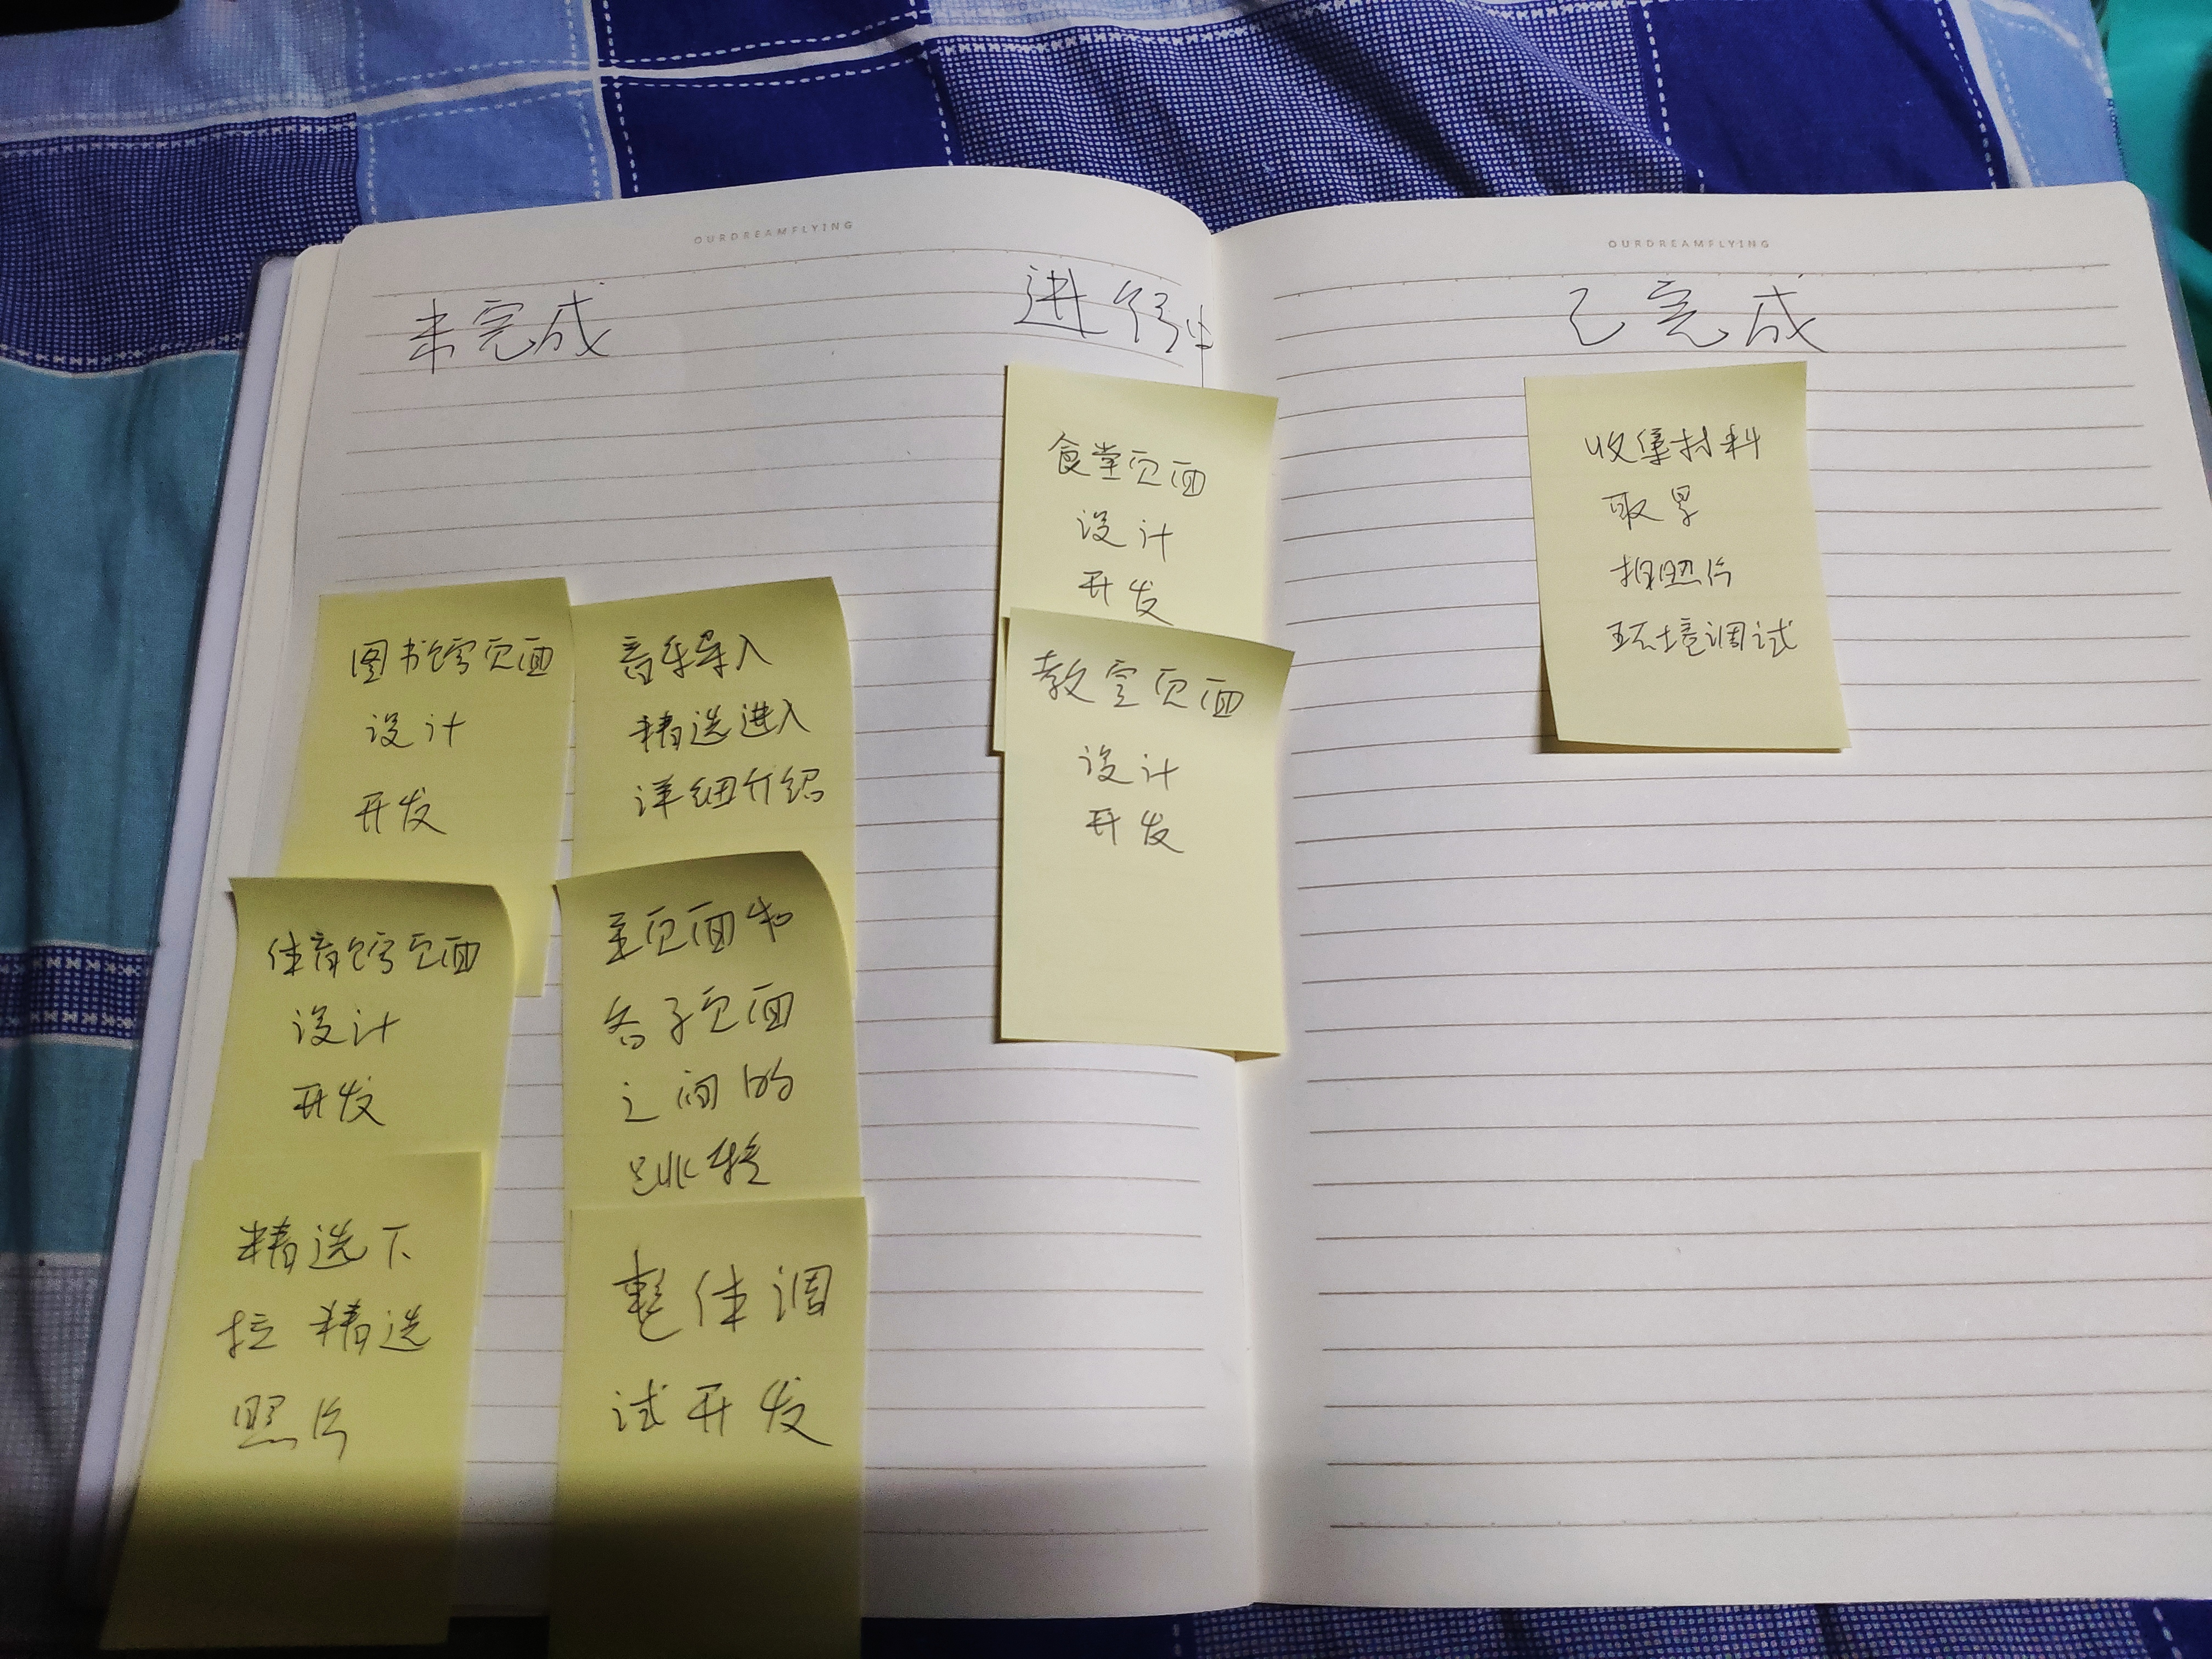 OURDREAMFLYING
OURDREAMFLYING
未完成
进行中
已完成
图书馆页面
设计
开发
体育馆页面
设计
开发
精选下
拉 精选
照片
音乐导入
精选进入
详细介绍
主页面和
各子页面
之间的
跳转
整体调
试开发
食堂页面
设计
开发
教室页面
设计
开发
收集材料
取景
拍照片
环境调试